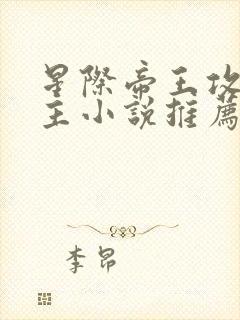 星際帝王攻
主小說推薦
李昂